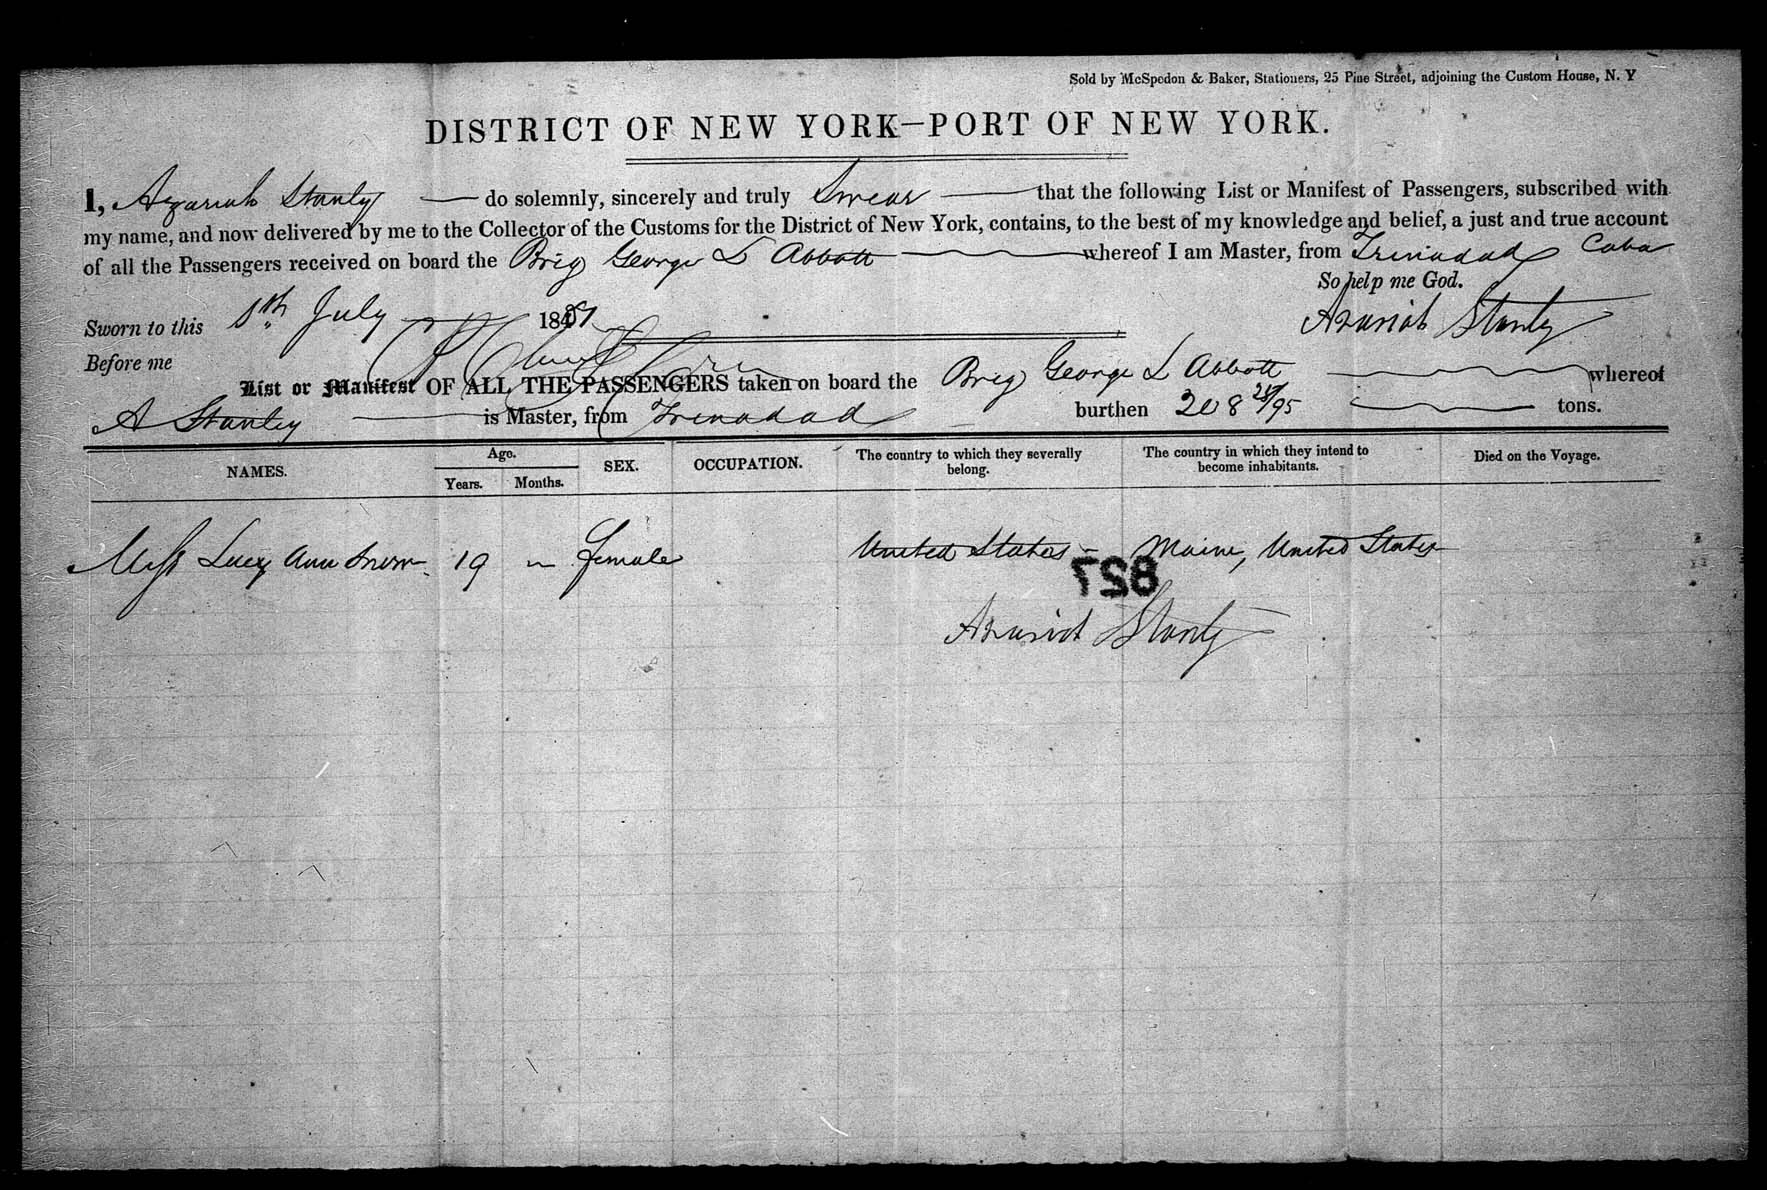 Sold by McSpedon & Baker, Stationers, 25 Pine Street, adjoining the Custom House, N. Y
DISTRICT OF NEW YORK—PORT OF NEW YORK.
I, Azariah Stanly — do solemnly, sincerely and truly Swear — that the following List or Manifest of Passengers, subscribed with
my name, and now delivered by me to the Collector of the Customs for the District of New York, contains, to the best of my knowledge and belief, a just and true account
of all the Passengers received on board the Brig George L Abbott — whereof I am Master, from Trinadad Cuba
So help me God.
Sworn to this July 1851
Azariah Stanly
Before me
List or Manifest OF ALL THE PASSENGERS taken on board the Brig George L Abbott — whereof
A Stanley — is Master, from Trinadad burthen 208 /95 — tons.
NAMES. Age. Years. Months. SEX. OCCUPATION. The country to which they severally belong. The country in which they intend to become inhabitants. Died on the Voyage.
Miss Lucy Ann Snow 19 — female United States — Maine, United States
827
Azariah Stanly